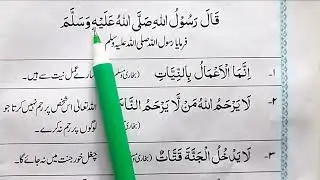 قَالَ رَسُوْلُ اللهِ صَلَّی اللهُ عَلَيْهِ وَسَلَّمَ
فرمایا رسول اللہ صلی اللہ علیہ وسلم
۱۔ اِنَّمَا الْاَعْمَالُ بِالنِّيَّاتِ (بخاری عمل نیت سے ہیں۔
۲۔ لَا يَرْحَمُ اللهُ مَنْ لَّا يَرْحَمُ النَّاسَ اللہ تعالیٰ اس شخص پر رحم نہیں کرتا جو
لوگوں پر رحم نہ کرے۔
۳۔ لَا يَدْخُلُ الْجَنَّةَ قَتَّاتٌ (بخاری چغل خور جنت میں نہ جائے گا۔